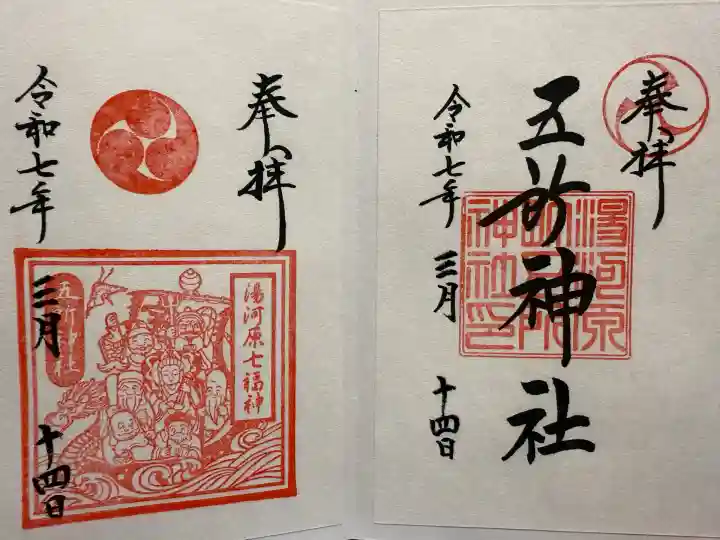 奉拝
五所神社
湯河原五所神社印
令和七年
三月
十四日
奉拝
湯河原七福神
五所神社
令和七年
三月
十四日